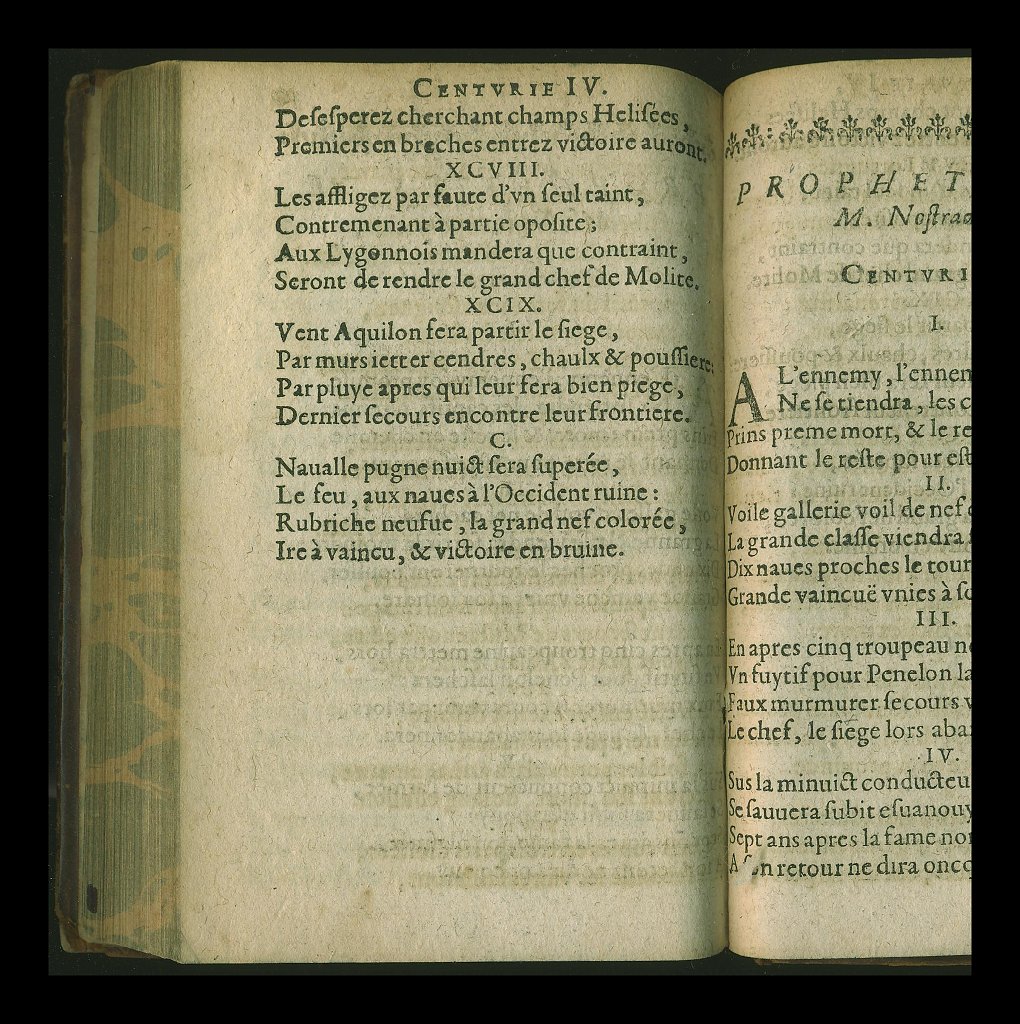 CENTVRIE IV.
Deseſperez cherchant champs Heliſées,
Premiers en breches entrez victoire auront.
XCVIII.
Les affligez par faute d'vn ſeul taint,
Contremenant à partie opoſite;
Aux Lygonnois mandera que contraint,
Seront de rendre le grand chef de Molite.
XCIX.
Vent Aquilon fera partir le ſiege,
Par murs ietter cendres, chaulx & pouſſiere;
Par pluye apres qui leur fera bien piege,
Dernier ſecours encontre leur frontiere.
C.
Naualle pugne nuict ſera ſuperée,
Le feu, aux naues à l'Occident ruine:
Rubriche neufue, la grand nef colorée,
Ire à vaincu, & victoire en bruine.
PROPHET
M. Noſtrad
CENTVRI
I.
AL'ennemy, l'ennem
Ne ſe tiendra, les c
Prins preme mort, & le re
Donnant le reſte pour eſt
II.
Voile gallerie voil de nef
La grande claſſe viendra
Dix naues proches le tour
Grande vaincuë vnies à ſo
III.
En apres cinq troupeau ne
Vn fuytif pour Penelon la
Faux murmurer ſecours v
Le chef, le ſiege lors aba
IV.
Sus la minuict conducteu
Se ſauuera ſubit eſuanouy
Sept ans apres la fame non
A ſon retour ne dira oncq